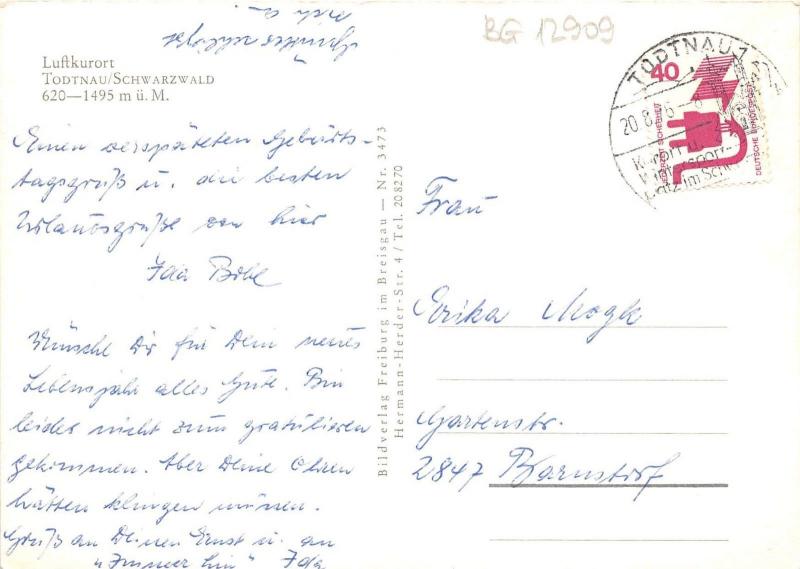 BG 12909
Luftkurort
TODTNAU/SCHWARZWALD
620—1495 m ü. M.
Einen verspäteten Geburts-
tagsgruß u. die besten
Urlaubsgrüße von hier
Ida Bohl
Wünsche Dir für Dein neues
Lebensjahr alles Gute. Bin
leider nicht zum gratulieren
gekommen. Aber Deine Ohren
hätten klingen müssen.
Gruß an Deinen Ernst u. an
"Immer hin" Ida
Bildverlag Freiburg im Breisgau — Nr. 3473
Hermann-Herder-Str. 4 / Tel. 208270
TODTNAU 1
20.8.
Kurort u.
Wintersport-
platz im Sch
40
JEDERZEIT SICHERHEIT
DEUTSCHE BUNDESPOST
Frau
Erika Mogk
Gartenstr.
2847 Barnstorf